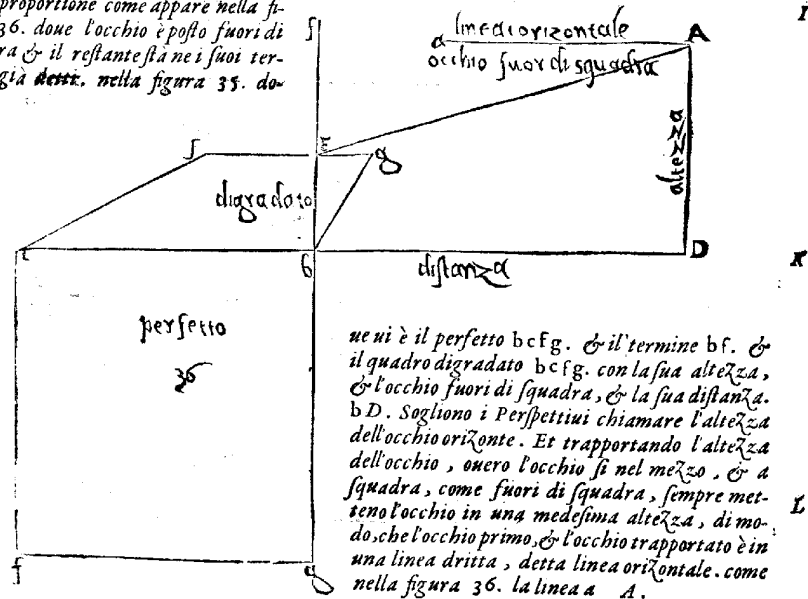 proportione come appare nella fi-
36. doue l'occhio è posto fuori di
ra & il restante stà nei suoi ter-
già detti. nella figura 35. do-
I
f
a linea orizontale A
occhio fuor di squadra
altezza
f g
digradato
c b D
distanza
K
perfetto
36
ue ui è il perfetto bcfg. & il termine bf. &
il quadro digradato bcfg. con la sua altezza,
& l'occhio fuori di squadra, & la sua distanza.
bD. Sogliono i Perspettiui chiamare l'altezza
dell'occhio orizonte. Et trapportando l'altezza
dell'occhio, ouero l'occhio si nel mezzo, & a
squadra, come fuori di squadra, sempre met-
teno l'occhio in una medesima altezza, di mo-
do, che l'occhio primo, & l'occhio trapportato è in
una linea dritta, detta linea orizontale. come
nella figura 36. la linea a A.
L
f g